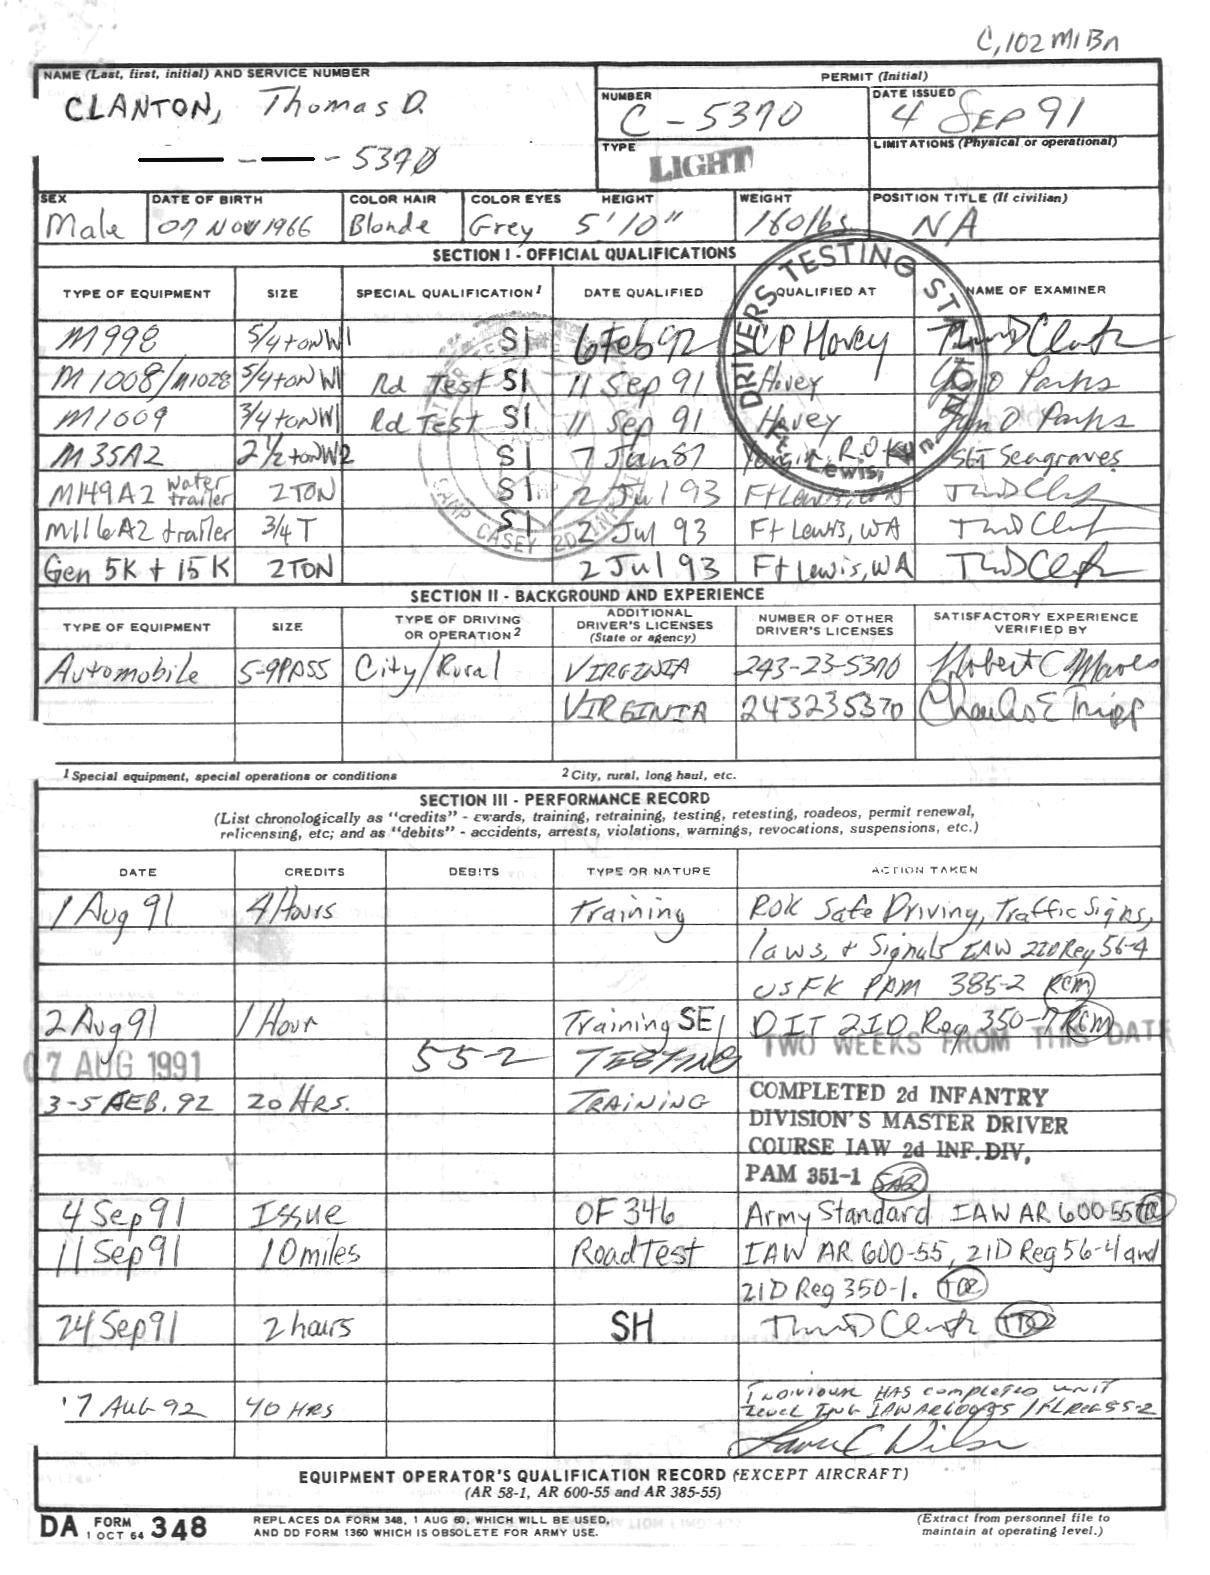 C, 102 MI Bn
NAME (Last, first, initial) AND SERVICE NUMBER
CLANTON, Thomas D.
- - 5370
PERMIT (Initial)
NUMBER
C - 5370
DATE ISSUED
4 SEP 91
TYPE
LIGHT
LIMITATIONS (Physical or operational)
SEX DATE OF BIRTH COLOR HAIR COLOR EYES HEIGHT WEIGHT POSITION TITLE (If civilian)
Male 07 NOV 1966 Blonde Grey 5'10" 160lbs. NA
SECTION I - OFFICIAL QUALIFICATIONS
TYPE OF EQUIPMENT SIZE SPECIAL QUALIFICATION1 DATE QUALIFIED QUALIFIED AT NAME OF EXAMINER
M998 5/4 tonW1 SI 6 Feb 92 CP Hovey
M1008/M1028 5/4 tonW1 Rd Test SI 11 Sep 91 Hovey O Parks
M1009 3/4 tonW1 Rd Test SI 11 Sep 91 Hovey O Parks
M35A2 2 1/2 tonW2 SI 7 Jan 87 Yongin, R.O.K. SGT Seagraves
M149A2 water trailer 2 TON SI 2 Jul 93 Ft Lewis, WA
M116A2 trailer 3/4 T SI 2 Jul 93 Ft Lewis, WA
Gen 5K + 15K 2 TON 2 Jul 93 Ft Lewis, WA
DRIVERS TESTING STATION
Ft. Lewis,
CAMP CASEY 2D INF
SECTION II - BACKGROUND AND EXPERIENCE
TYPE OF EQUIPMENT SIZE TYPE OF DRIVING OR OPERATION2 ADDITIONAL DRIVER'S LICENSES (State or agency) NUMBER OF OTHER DRIVER'S LICENSES SATISFACTORY EXPERIENCE VERIFIED BY
Automobile 5-9PASS City/Rural VIRGINIA 243-23-5370 Robert C
VIRGINIA 243235370 Charles E Tripp
1 Special equipment, special operations or conditions 2 City, rural, long haul, etc.
SECTION III - PERFORMANCE RECORD
(List chronologically as "credits" - awards, training, retraining, testing, retesting, roadeos, permit renewal,
relicensing, etc; and as "debits" - accidents, arrests, violations, warnings, revocations, suspensions, etc.)
DATE CREDITS DEBITS TYPE OR NATURE ACTION TAKEN
1 Aug 91 4 Hours Training ROK Safe Driving, Traffic Signs,
laws, + Signals IAW 2ID Reg 56-4
USFK PAM 385-2 RCM
2 Aug 91 1 Hour Training SE DIT 2ID Reg 350-1 RCM
07 AUG 1991 55-2 TESTING TWO WEEKS FROM THIS DATE
3-5 FEB. 92 20 HRS. TRAINING COMPLETED 2d INFANTRY
DIVISION'S MASTER DRIVER
COURSE IAW 2d INF. DIV,
PAM 351-1
4 Sep 91 Issue OF 346 Army Standard IAW AR 600-55
11 Sep 91 10 miles Road Test IAW AR 600-55, 2ID Reg 56-4 and
2ID Reg 350-1.
24 Sep 91 2 hours SH
7 AUG 92 40 HRS INDIVIDUAL HAS completed unit
Level TNG IAW AR 600-55 / FL REG 55-2
EQUIPMENT OPERATOR'S QUALIFICATION RECORD (EXCEPT AIRCRAFT)
(AR 58-1, AR 600-55 and AR 385-55)
DA FORM 1 OCT 64 348
REPLACES DA FORM 348, 1 AUG 60, WHICH WILL BE USED,
AND DD FORM 1360 WHICH IS OBSOLETE FOR ARMY USE.
(Extract from personnel file to
maintain at operating level.)